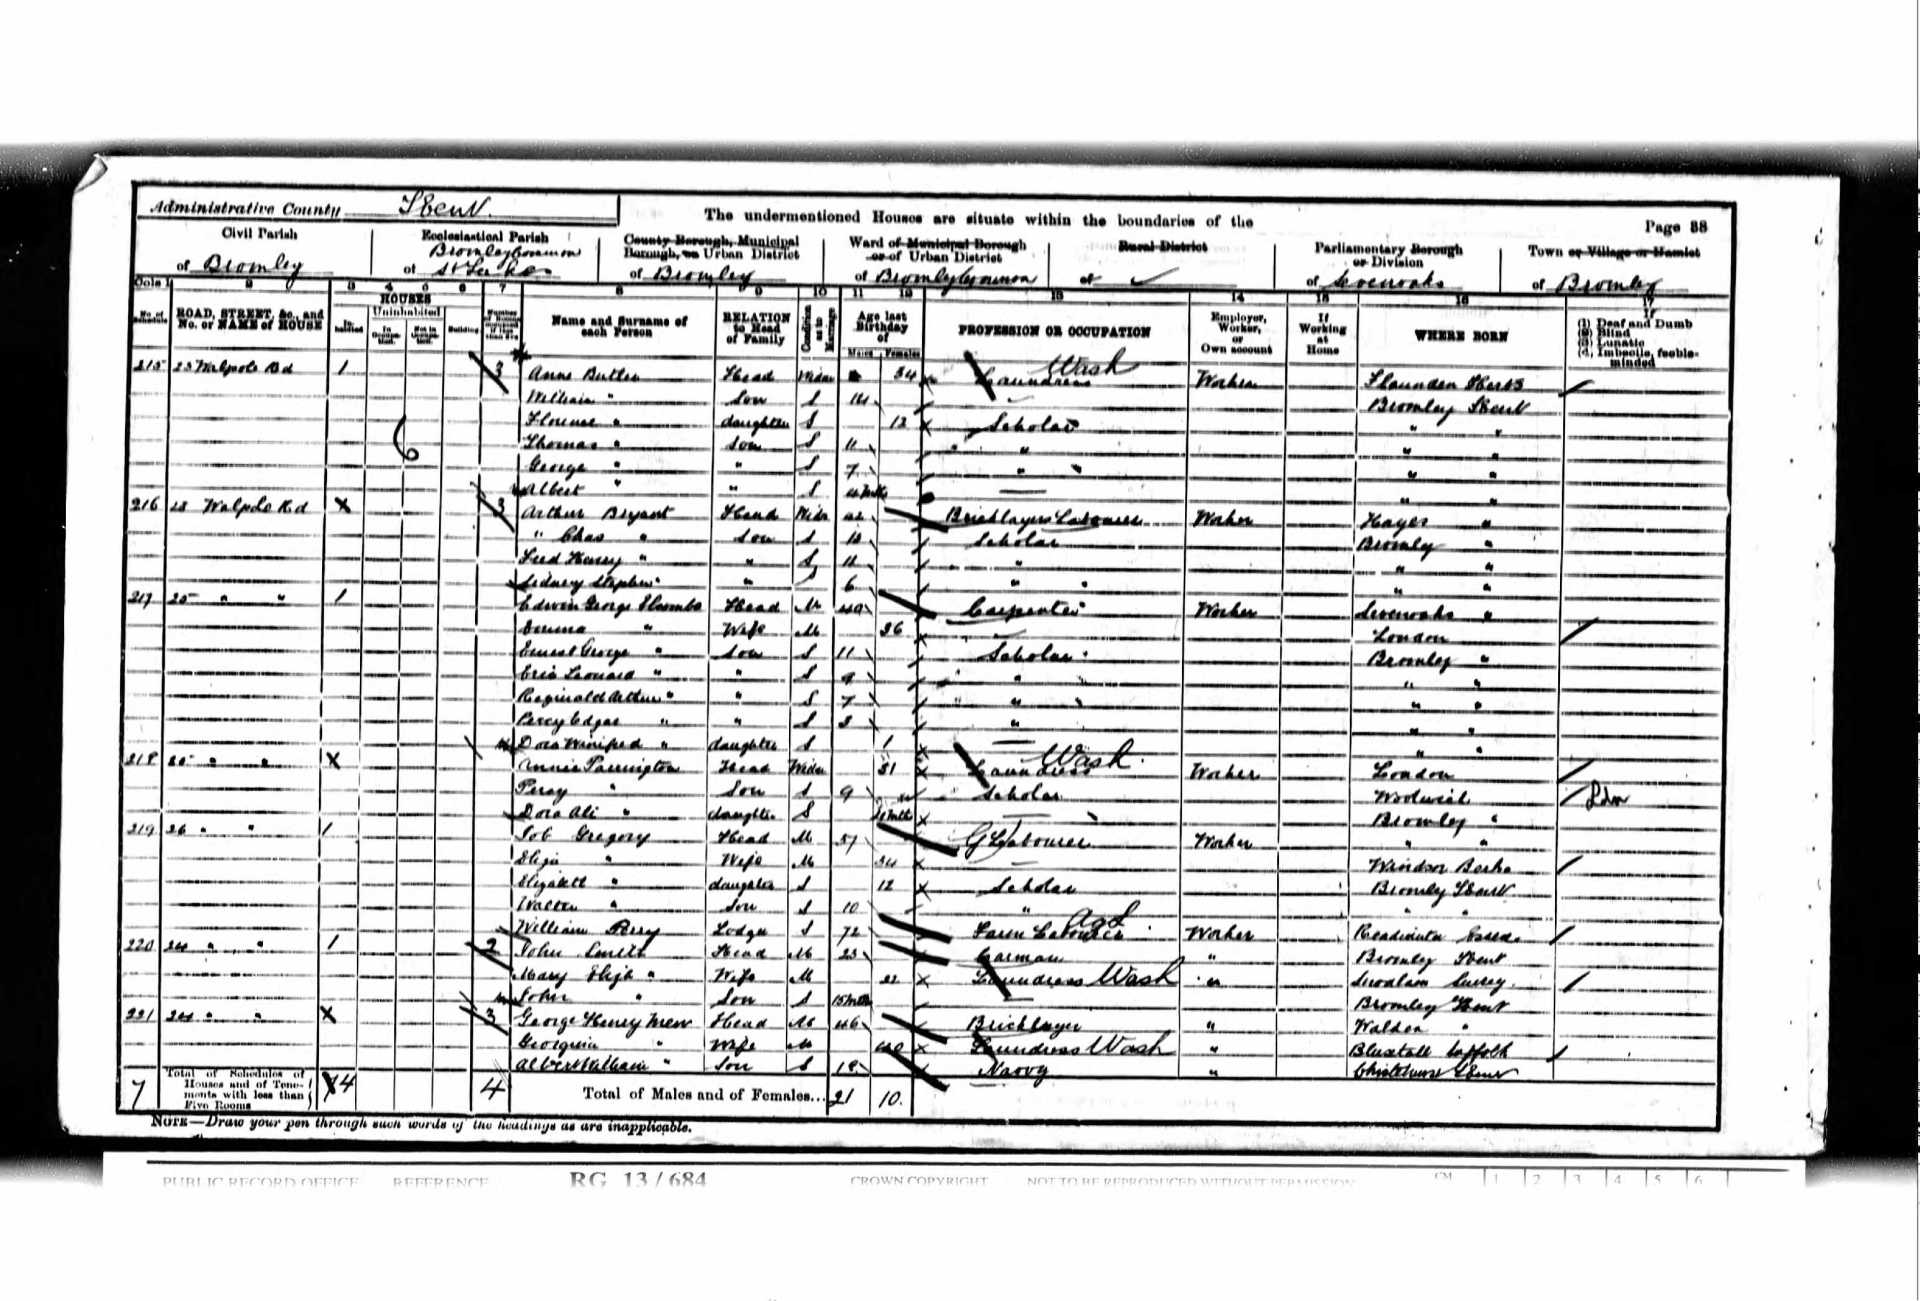 Administrative County Kent
The undermentioned Houses are situate within the boundaries of the
Page 38
Civil Parish
of Bromley
Ecclesiastical Parish
Bromley Common
of St Lukes
County Borough, Municipal
Borough, or Urban District
of Bromley
Ward of Municipal Borough
or of Urban District
of Bromley Common
Rural District
of
Parliamentary Borough
or Division
of Sevenoaks
Town or Village or Hamlet
of Bromley
Cols 1 2 3 4 5 6 7 8 9 10 11 12 13 14 15 16 17
No. of Schedule
ROAD, STREET, &c., and No. or NAME of HOUSE
HOUSES
Inhabited
Uninhabited
In Occupation.
Not in Occupation.
Building
Name and Surname of each Person
RELATION to Head of Family
Condition as to Marriage
Age last Birthday of
Males Females
PROFESSION OR OCCUPATION
Employer, Worker, or Own account
If Working at Home
WHERE BORN
If
(1) Deaf and Dumb
(2) Blind
(3) Lunatic
(4) Imbecile, feeble-minded
215 23 Walpole Rd 1 3 Anne Butler Head Widow 34 Laundress Wash Worker Flaunden Herts
William " Son S 14 Bromley Kent
Florence " daughter S 12 Scholar " "
Thomas " Son S 11 " " "
George " " S 7 " " "
Albert " " S 4 Mths " "
216 23 Walpole Rd X 3 Arthur Bryant Head Widr 42 Bricklayers Labourer Worker Hayes "
" Chas " Son S Scholar Bromley "
Fred Henry " " S 11 " " "
Sidney Stephen " " S 6 " " "
217 25 " " 1 Edwin George Head M 49 Carpenter Worker Sevenoaks "
Emma " Wife M 36 London
Ernest George " Son S 11 Scholar Bromley "
Eric Leonard " " S 9 " " "
Reginald Arthur " " S 7 " " "
Percy Edgar " " S 3 " " "
Dora Winifred " daughter S 1 " "
218 25 " " X Annie Parrington Head Widow 31 Laundress Wash Worker London
Percy " Son S 9 Scholar Woolwich Ldn
Dora " daughter S Mths Bromley "
219 26 " " 1 Job Gregory Head M 57 G Labourer Worker " "
Eliza " Wife M 54 Windsor Berks
Elizabeth " daughter S 12 Scholar Bromley Kent
Walter " Son S 10 " " "
William Perry Lodger S 72 Farm Labourer Ag Worker Essex
220 24 " " 1 2 John Smith Head M 23 Carman " Bromley Kent
Mary Eliza " Wife M 22 Laundress Wash " Surrey
John " Son S 15 Mths Bromley Kent
221 24 " " X 3 George Henry Mew Head M 46 Bricklayer " "
Georgina " Wife M 40 Laundress Wash " Suffolk
Albert William " Son S 19 Navvy " Chislehurst Kent
7
Total of Schedules of Houses and of Tenements with less than Five Rooms
4
4
Total of Males and of Females... 21 10.
NOTE—Draw your pen through such words of the headings as are inapplicable.
PUBLIC RECORD OFFICE REFERENCE RG 13/684 CROWN COPYRIGHT NOT TO BE REPRODUCED WITHOUT PERMISSION CM 1 2 3 4 5 6